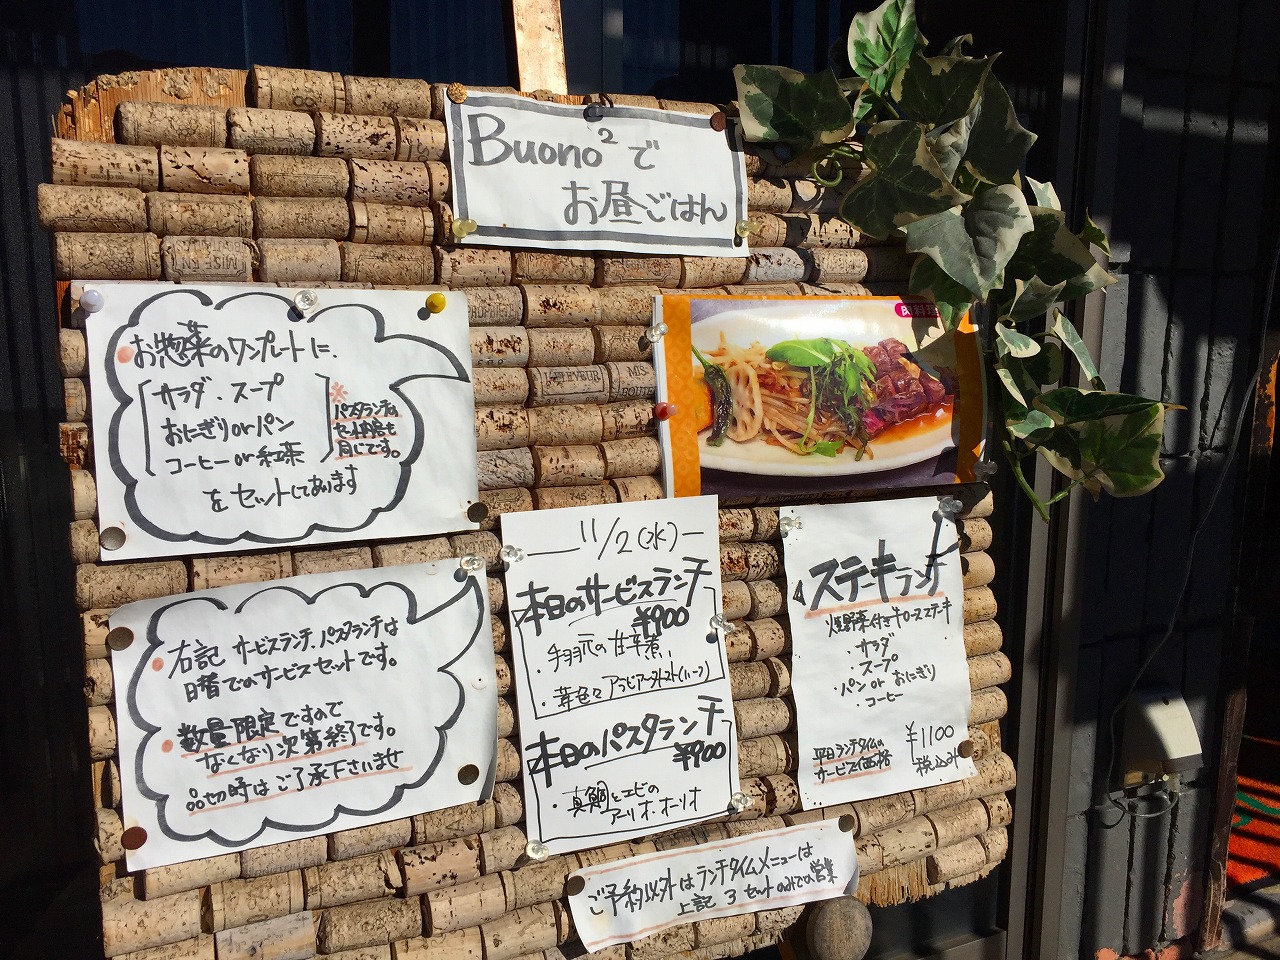 Buono²で
お昼ごはん
お惣菜のワンプレートに、
サラダ・スープ
おにぎりorパン
コーヒーor紅茶
をセットしてあります
※
パスタランチも
セット内容も
同じです。
右記 サービスランチ、パスタランチは
日替でのサービスセットです。
数量限定ですので
なくなり次第終了です。
品切時はご了承下さいませ
11/2(水)
本日のサービスランチ
¥900
・手羽元の甘辛煮、
・茸色々アラビアータトマト(ハーフ)
本日のパスタランチ
¥900
・真鯛とエビの
アーリオ・オーリオ
ステーキランチ
・サラダ
・スープ
・パン or おにぎり
・コーヒー
平日ランチタイムの
サービス価格
¥1100
税込み
ご予約以外はランチタイムメニューは
上記 3 セットのみでの営業